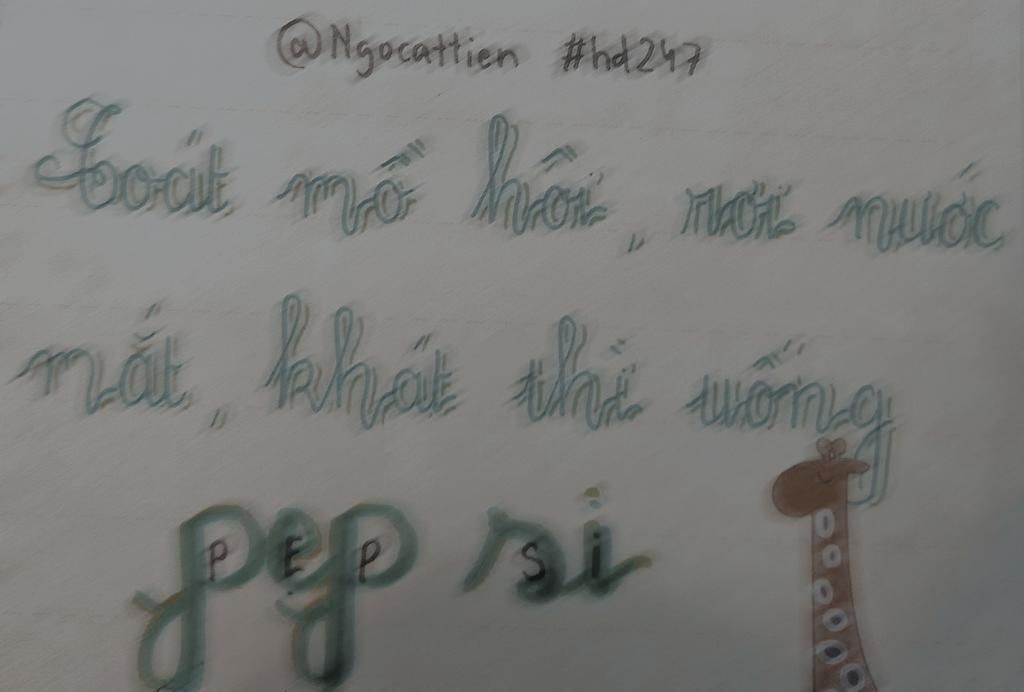 @Ngocattien #hd247
Toát mồ hôi, rơi nước
mắt, khát thì uống
pep si
P Ẹ P S i